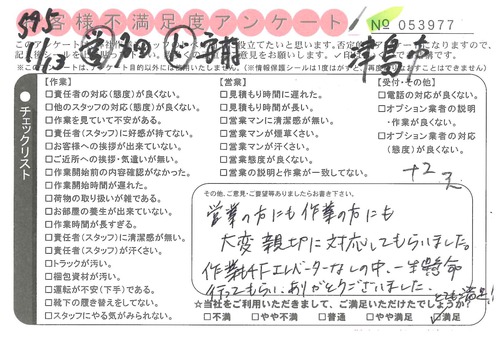 お客様不満足度アンケート
№ 053977
595
1/13
津島市
チェックリスト
【作業】
□責任者の対応(態度)が良くない。
□他のスタッフの対応(態度)が良くない。
□作業を見ていて不安がある。
□責任者(スタッフ)に好感が持てない。
□お客様への挨拶が出来ていない。
□ご近所への挨拶・気遣いが無い。
□作業開始前の内容確認がなかった。
□作業開始時間が遅れた。
□荷物の取り扱いが雑である。
□お部屋の養生が出来ていない。
□作業時間が長すぎる。
□責任者(スタッフ)に清潔感が無い。
□責任者(スタッフ)が汗くさい。
□トラックが汚い。
□梱包資材が汚い。
□運転が不安(下手)である。
□靴下の履き替えをしてない。
□スタッフにやる気がみられない。
【営業】
□見積もり時間に遅れた。
□見積もり時間が長い。
□営業マンに清潔感が無い。
□営業マンが煙草くさい。
□営業マンが汗くさい。
□営業態度が良くない。
□営業の説明と作業が一致してない。
【受付・その他】
□電話の対応が良くない。
□オプション業者の説明・作業が良くない。
□オプション業者の対応(態度)が良くない。
その他、ご意見・ご要望等ありましたらお書き下さい。
営業の方にも作業の方にも
大変親切に対応してもらいました。
作業も4Fエレベーターなしの中、一生懸命
行ってもらい、ありがとうございました。
とても満足!!
☆当社をご利用いただきまして、ご満足いただけたでしょうか?
□不満 □やや不満 □普通 □やや満足 ☑満足